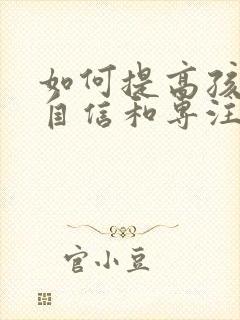 如何提高孩
自信和专注
官小豆